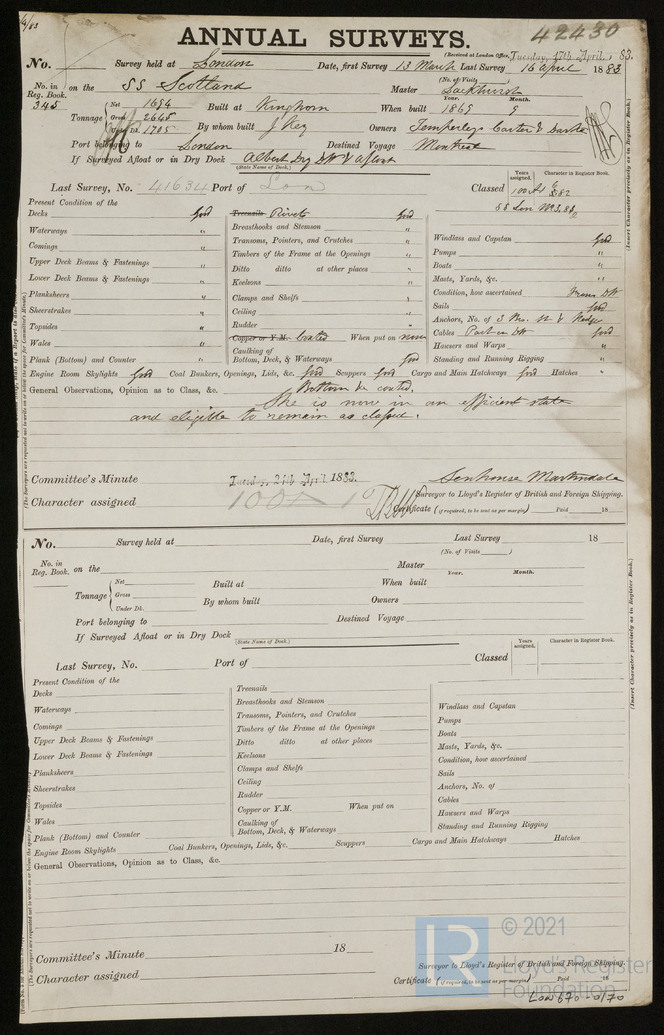 42430
ANNUAL SURVEYS.
(Received at London Office, Tuesday, 17th April, 83.
No. Survey held at London Date, first Survey 13 March Last Survey 16 April 1883
(No. of Visits )
No. in Reg. Book. on the SS Scotland Master
345 Net 1694 Built at Kinghorn When built Year. 1869 Month. 9
Tonnage Gross 2645
Under Dk. 1705 By whom built J Key Owners Temperleys Carter & Darke
Port belonging to London Destined Voyage Montreal
If Surveyed Afloat or in Dry Dock Albert Dry Dk & afloat
(State Name of Dock.)
Last Survey, No. 41634 Port of Lon Classed Years assigned. 100A1 Character in Register Book. 5.82
SS Lon No3.82
Present Condition of the
Decks good
Waterways "
Comings "
Upper Deck Beams & Fastenings "
Lower Deck Beams & Fastenings "
Planksheers "
Sheerstrakes "
Topsides "
Wales "
Plank (Bottom) and Counter "
Treenails Rivets good
Breasthooks and Stemson "
Transoms, Pointers, and Crutches "
Timbers of the Frame at the Openings "
Ditto ditto at other places "
Keelsons "
Clamps and Shelfs "
Ceiling "
Rudder "
Copper or Y.M. Coated When put on now
Caulking of
Bottom, Deck, & Waterways good
Windlass and Capstan good
Pumps "
Boats "
Masts, Yards, &c. "
Condition, how ascertained From Dk
Sails good
Anchors, No. of 3
Cables Part on Dk good
Hawsers and Warps "
Standing and Running Rigging "
Engine Room Skylights good Coal Bunkers, Openings, Lids, &c. good Scuppers good Cargo and Main Hatchways good Hatches "
General Observations, Opinion as to Class, &c. Bottom re coated.
She is now in an efficient state
and eligible to remain as classed.
Committee's Minute Tuesday, 24th April 1883.
Senhouse Martindale
Character assigned 100A1
Surveyor to Lloyd's Register of British and Foreign Shipping.
Certificate (if required, to be sent as per margin) Paid 18
No. Survey held at Date, first Survey Last Survey 18
(No. of Visits )
No. in Reg. Book. on the Master
Year. Month.
Net Built at When built
Tonnage Gross
Under Dk. By whom built Owners
Port belonging to Destined Voyage
If Surveyed Afloat or in Dry Dock
(State Name of Dock.)
Last Survey, No. Port of Classed Years assigned. Character in Register Book.
Present Condition of the
Decks
Waterways
Comings
Upper Deck Beams & Fastenings
Lower Deck Beams & Fastenings
Planksheers
Sheerstrakes
Topsides
Wales
Plank (Bottom) and Counter
Treenails
Breasthooks and Stemson
Transoms, Pointers, and Crutches
Timbers of the Frame at the Openings
Ditto ditto at other places
Keelsons
Clamps and Shelfs
Ceiling
Rudder
Copper or Y.M. When put on
Caulking of
Bottom, Deck, & Waterways
Windlass and Capstan
Pumps
Boats
Masts, Yards, &c.
Condition, how ascertained
Sails
Anchors, No. of
Cables
Hawsers and Warps
Standing and Running Rigging
Engine Room Skylights Coal Bunkers, Openings, Lids, &c. Scuppers Cargo and Main Hatchways Hatches
General Observations, Opinion as to Class, &c.
Committee's Minute 18
Character assigned
Surveyor to Lloyd's Register of British and Foreign Shipping.
Certificate (if required, to be sent as per margin) Paid 18
(Insert Character precisely as in Register Book.)
(Insert Character precisely as in Register Book.)
LR © 2021
Lloyd's Register
Foundation
LON 670-0170